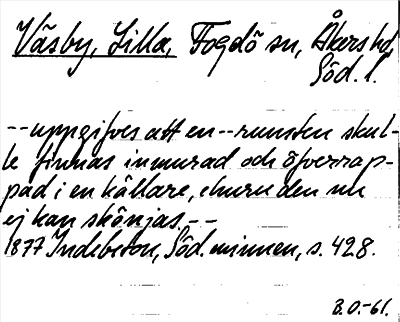 Väsby, Lilla, Fogdö sn, Åkers hd,
Söd. l.
-- uppgifves att en -- runsten skul-
le finnas inmurad och öfverrap-
pad i en källare, ehuru den nu
ej kan skönjas. --
1877 Indebetou, Söd. minnen, s. 428.
B.O.-61.